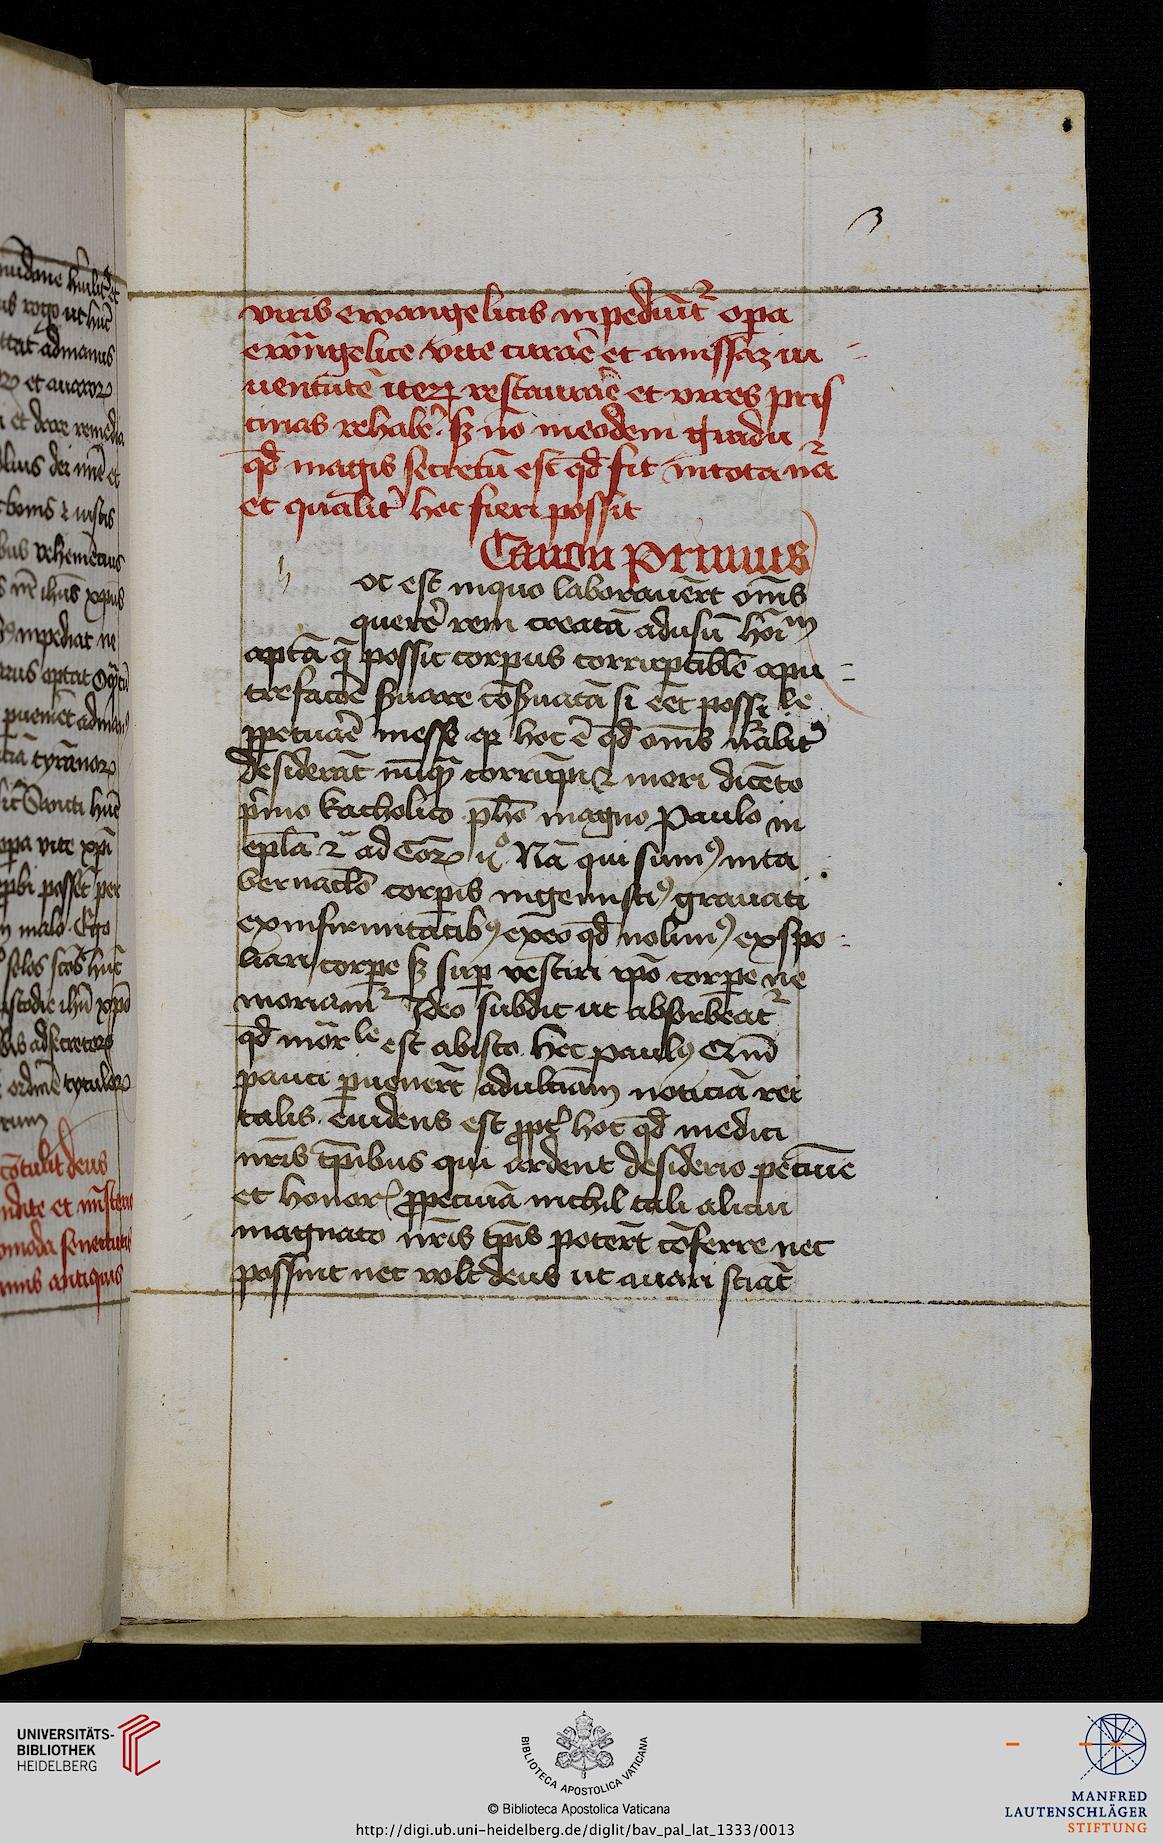 3
viris ewangelicis inpediu̅t᷑ opa
ewa̅ngelice vite curar̅e et amissaz iu
uentute̅ iteꝝ restaurar̅e et vires pris
tinas rehabe᷑. sꝫ no̅ ineodem gradu
qd̅ magis secretu̅ est qd̅ sit intota na̅
et qualit᷑ hoc fieri possit
Canon Primus
h
oc est inquo laborauer̅t om̅s
quere᷑ rem creata̅ adusu̅ hoi̅m
apta̅ q̅ possit corpus corruptibile̅ a pu
trefacco̅e s̅uare co̅s̅uata̅ si eet̅ possi le
ꝑpetuar̅e inesse qꝛ hoc e̅ qd̅ om̅s na̅lit᷑
desidera̅t nu̅qꝫ corru̅pi ⁊ mori dice̅to
p᷑mo katholico pho̅ magno Paulo in
epl̅a 2ᵃ ad Corꝝ vͦ. Na̅ qui sumꝰ inta
bernaclo̅ corpis ingemisciꝰ grauati
exinfirmitatibꝰ exeo qd̅ nolimꝰ exspo
liari corpe sꝫ sup vestiri ip̅o corpe ne
moriam᷑ Ideo subdit ut absorbeat᷑
qd̅ mor̅ le est abisto. Hec paulꝰ Qm̅
pauci ꝑuener̅t adultiam̅ noticia̅ rei
talis. euidens est ꝓpt᷑ hoc qd̅ medici
nr̅is tp̅ibus qui ardent desiderio pecu̅ie
et honor᷑ ꝓpecuia̅ nichil tali alicui
magnato nr̅is tp̅is poter̅t co̅ferre nec
possu̅t nec volt deus ut auari scia̅t
UNIVERSITÄTS-
BIBLIOTHEK
HEIDELBERG
BIBLIOTECA APOSTOLICA VATICANA
© Biblioteca Apostolica Vaticana
http://digi.ub.uni-heidelberg.de/diglit/bav_pal_lat_1333/0013
MANFRED
LAUTENSCHLÄGER
STIFTUNG